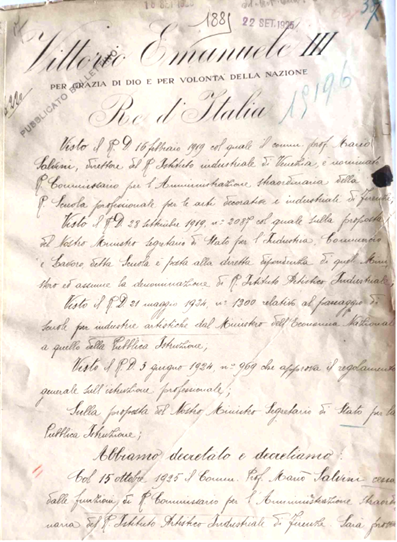 1881
22 SET. 1925
37
Vittorio Emanuele III
PER GRAZIA DI DIO E PER VOLONTÀ DELLA NAZIONE
Re d'Italia
PUBBLICATO BOLLETTINO
19196
Visto il R° D. 16 febbraio 1919 col quale il comm. prof. Mario
Salvini, direttore del R° Istituto industriale di Venezia, è nominato
R° Commissario per l'Amministrazione straordinaria della
R° Scuola professionale per le arti decorative e industriale di Firenze
Visto il R° D. 28 settembre 1919 n. 2087 col quale sulla proposta
del Nostro Ministro Segretario di Stato per l'Industria, Commercio
e Lavoro, detta Scuola è posta alla diretta dipendenza di quel Mini
stero ed assume la denominazione di R° Istituto Artistico Industriale
Visto il R° D. 21 maggio 1924 n° 1300 relativo al passaggio di
scuole per industrie artistiche dal Ministro dell'Economia Nazionale
a quello della Pubblica Istruzione,
Visto il R° D. 3 giugno 1924 n° 969 che approva il regolamento
generale sull'istruzione professionale;
Sulla proposta del Nostro Ministro Segretario di Stato per la
Pubblica Istruzione;
Abbiamo decretato e decretiamo:
Col 15 ottobre 1925 il Comm. Prof. Mario Salvini cessa
dalle funzioni di R° Commissario per l'Amministrazione straordi
naria del R° Istituto Artistico Industriale di Firenze. Sarà